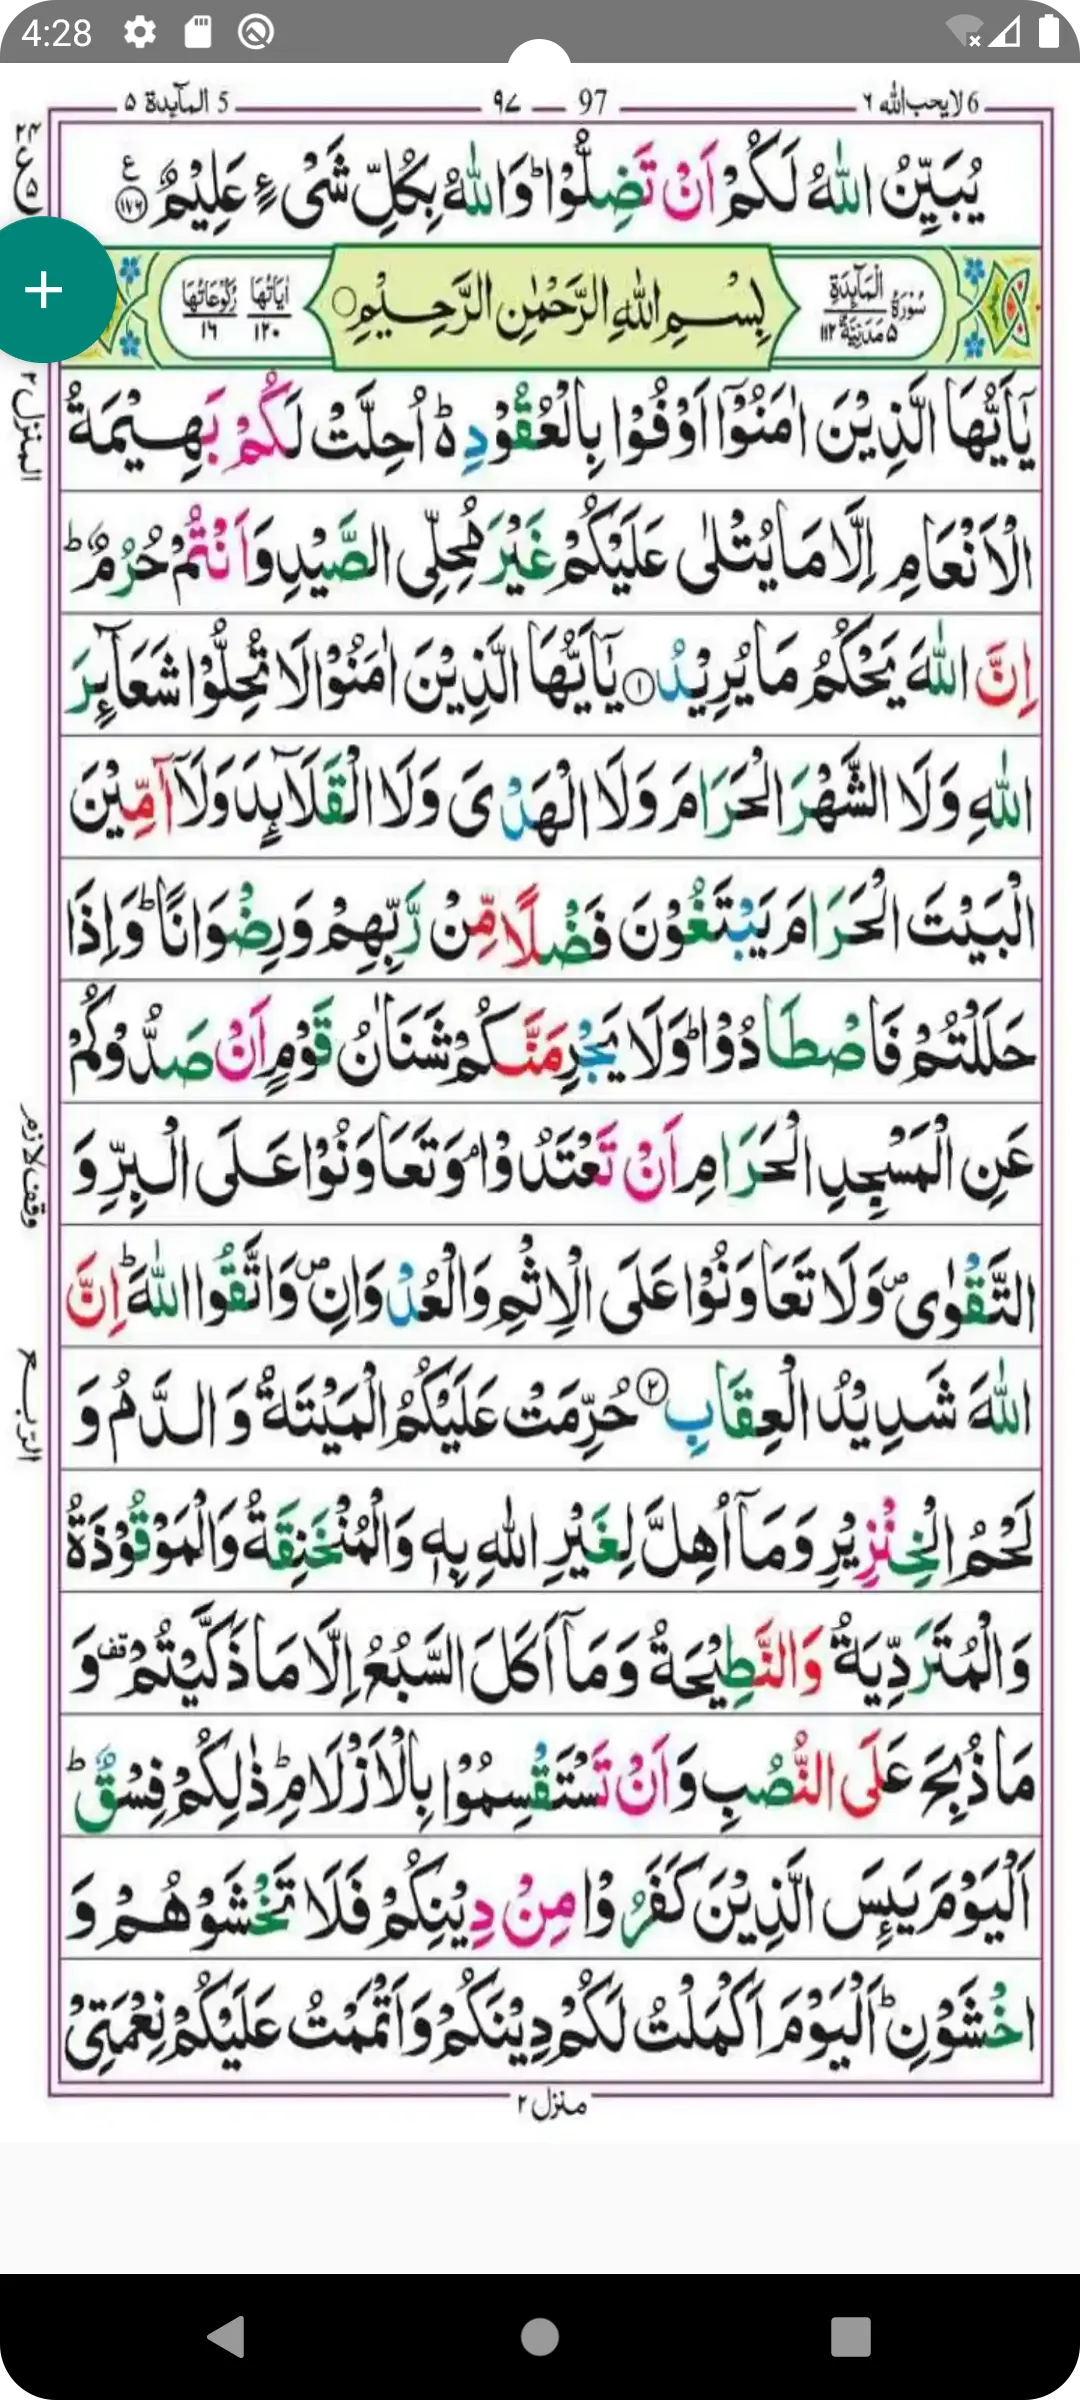 4:28
5 المآيدة ٥
٩٧ — 97
6 لايحب الله ٦
٢٤
ع
٥
يُبَيِّنُ اللّٰهُ لَكُمْ اَنْ تَضِلُّوْا ؕ وَاللّٰهُ بِكُلِّ شَیْءٍ عَلِیْمٌ ﴿۱۷۶﴾ ع
+
سُوْرَةُ الْمَآئِدَةِ ٥ مَدَنِيَّةٌ ١١٢
بِسْمِ اللّٰهِ الرَّحْمٰنِ الرَّحِیْمِ ○
اٰيَاتُهَا ١٢٠ رُكُوْعَاتُهَا ١٦
المنزل ٢
یٰۤاَیُّهَا الَّذِیْنَ اٰمَنُوْۤا اَوْفُوْا بِالْعُقُوْدِ ؕ۬ اُحِلَّتْ لَكُمْ بَهِیْمَةُ
الْاَنْعَامِ اِلَّا مَا یُتْلٰی عَلَیْكُمْ غَیْرَ مُحِلِّی الصَّیْدِ وَاَنْتُمْ حُرُمٌ ؕ
اِنَّ اللّٰهَ یَحْكُمُ مَا یُرِیْدُ ﴿۱﴾ یٰۤاَیُّهَا الَّذِیْنَ اٰمَنُوْا لَا تُحِلُّوْا شَعَآئِرَ
اللّٰهِ وَلَا الشَّهْرَ الْحَرَامَ وَلَا الْهَدْیَ وَلَا الْقَلَآئِدَ وَلَاۤ آمِّیْنَ
الْبَیْتَ الْحَرَامَ یَبْتَغُوْنَ فَضْلًا مِّنْ رَّبِّهِمْ وَرِضْوَانًا ؕ وَاِذَا
حَلَلْتُمْ فَاصْطَادُوْا ؕ وَلَا یَجْرِمَنَّكُمْ شَنَاٰنُ قَوْمٍ اَنْ صَدُّوْكُمْ
عَنِ الْمَسْجِدِ الْحَرَامِ اَنْ تَعْتَدُوْا ۘ وَتَعَاوَنُوْا عَلَی الْبِرِّ وَ
وقف لازم
التَّقْوٰی ۪ وَلَا تَعَاوَنُوْا عَلَی الْاِثْمِ وَالْعُدْوَانِ ۪ وَاتَّقُوا اللّٰهَ ؕ اِنَّ
اللّٰهَ شَدِیْدُ الْعِقَابِ ﴿۲﴾ حُرِّمَتْ عَلَیْكُمُ الْمَیْتَةُ وَ الدَّمُ وَ
الربع
لَحْمُ الْخِنْزِیْرِ وَمَاۤ اُهِلَّ لِغَیْرِ اللّٰهِ بِهٖ وَالْمُنْخَنِقَةُ وَالْمَوْقُوْذَةُ
وَالْمُتَرَدِّیَةُ وَالنَّطِیْحَةُ وَمَاۤ اَكَلَ السَّبُعُ اِلَّا مَا ذَكَّیْتُمْ قف وَ
مَا ذُبِحَ عَلَی النُّصُبِ وَاَنْ تَسْتَقْسِمُوْا بِالْاَزْلَامِ ؕ ذٰلِكُمْ فِسْقٌ ؕ
اَلْیَوْمَ یَئِسَ الَّذِیْنَ كَفَرُوْا مِنْ دِیْنِكُمْ فَلَا تَخْشَوْهُمْ وَ
اخْشَوْنِ ؕ اَلْیَوْمَ اَكْمَلْتُ لَكُمْ دِیْنَكُمْ وَاَتْمَمْتُ عَلَیْكُمْ نِعْمَتِیْ
منزل ٢